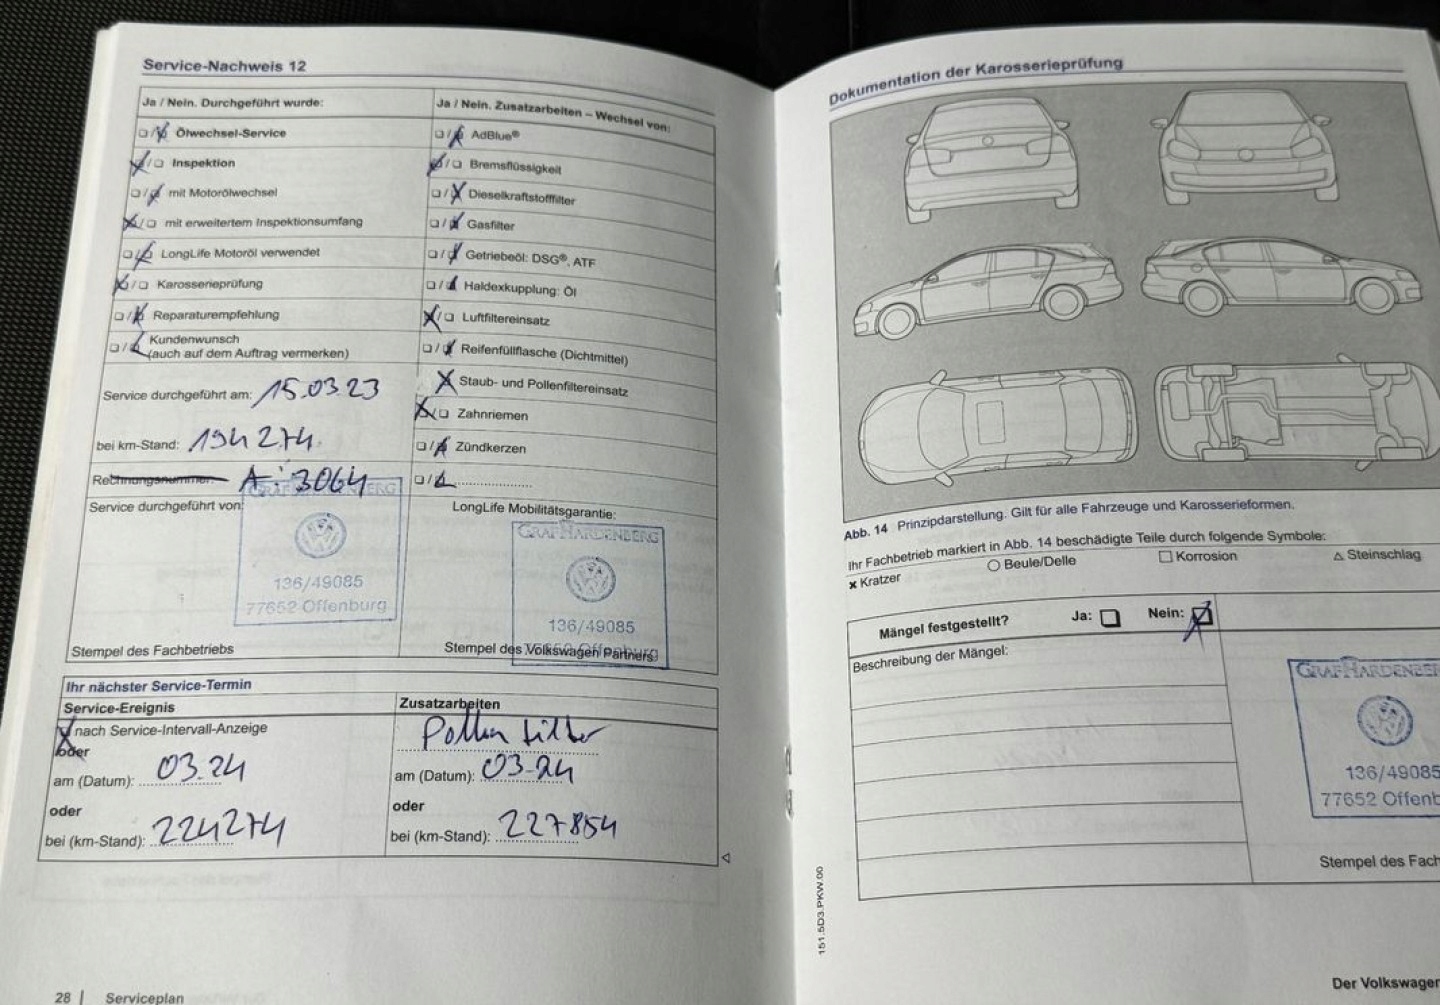 Service-Nachweis 12
Ja / Nein. Durchgeführt wurde:
Ölwechsel-Service
Inspektion
mit Motorölwechsel
mit erweitertem Inspektionsumfang
LongLife Motoröl verwendet
Karosserieprüfung
Reparaturempfehlung
Kundenwunsch
(auch auf dem Auftrag vermerken)
Service durchgeführt am: 15.03.23
bei km-Stand: 194274
Rechnungsnummer: A: 3064
Service durchgeführt von:
GRAF HARDENBERG
136/49085
77652 Offenburg
Stempel des Fachbetriebs
Ja / Nein. Zusatzarbeiten – Wechsel von:
AdBlue®
Bremsflüssigkeit
Dieselkraftstofffilter
Gasfilter
Getriebeöl: DSG®, ATF
Haldexkupplung: Öl
Luftfiltereinsatz
Reifenfüllflasche (Dichtmittel)
Staub- und Pollenfiltereinsatz
Zahnriemen
Zündkerzen
LongLife Mobilitätsgarantie:
GRAF HARDENBERG
136/49085
77652 Offenburg
Stempel des Volkswagen Partners
Ihr nächster Service-Termin
Service-Ereignis
nach Service-Intervall-Anzeige
oder
am (Datum): 03.24
oder
bei (km-Stand): 224274
Zusatzarbeiten
Pollen filter
am (Datum): 03-24
oder
bei (km-Stand): 227854
28 | Serviceplan
Dokumentation der Karosserieprüfung
Abb. 14 Prinzipdarstellung. Gilt für alle Fahrzeuge und Karosserieformen.
Ihr Fachbetrieb markiert in Abb. 14 beschädigte Teile durch folgende Symbole:
× Kratzer ○ Beule/Delle □ Korrosion △ Steinschlag
Mängel festgestellt? Ja: Nein:
Beschreibung der Mängel:
GRAF HARDENBER
136/49085
77652 Offenb
Stempel des Fach
151.5D3.PKW.00
Der Volkswagen